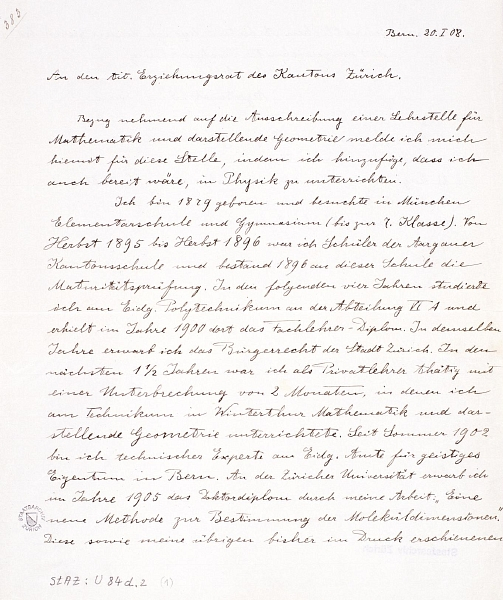 383
Bern. 20. I 08.
An den tit. Erziehungsrat des Kantons Zürich.
Bezug nehmend auf die Ausschreibung einer Lehrstelle für
Mathematik und darstellende Geometrie melde ich mich
hiemit für diese Stelle, indem ich hinzufüge, dass ich
auch bereit wäre, in Physik zu unterrichten.
Ich bin 1879 geboren und besuchte in München
Elementarschule und Gymnasium (bis zur 7. Klasse). Von
Herbst 1895 bis Herbst 1896 war ich Schüler der Aargauer
Kantonsschule und bestand 1896 an dieser Schule die
Maturitätsprüfung. In den folgenden vier Jahren studierte
ich am Eidg. Polytechnikum an der Abteilung VI A und
erhielt im Jahre 1900 dort das Fachlehrer-Diplom. In demselben
Jahre erwarb ich das Bürgerrecht der Stadt Zürich. In den
nächsten 1½ Jahren war ich als Privatlehrer thätig mit
einer Unterbrechung von 2 Monaten, in denen ich
am Technikum in Winterthur Mathematik und dar-
stellende Geometrie unterrichtete. Seit Sommer 1902
bin ich technischer Experte am Eidg. Amte für geistiges
Eigentum in Bern. An der Züricher Universität erwarb ich
im Jahre 1905 das Doktordiplom durch meine Arbeit „Eine
neue Methode zur Bestimmung der Moleküldimensionen".
Diese sowie meine übrigen bisher im Druck erschienenen
StAZ: U 84 d. 2 (1)